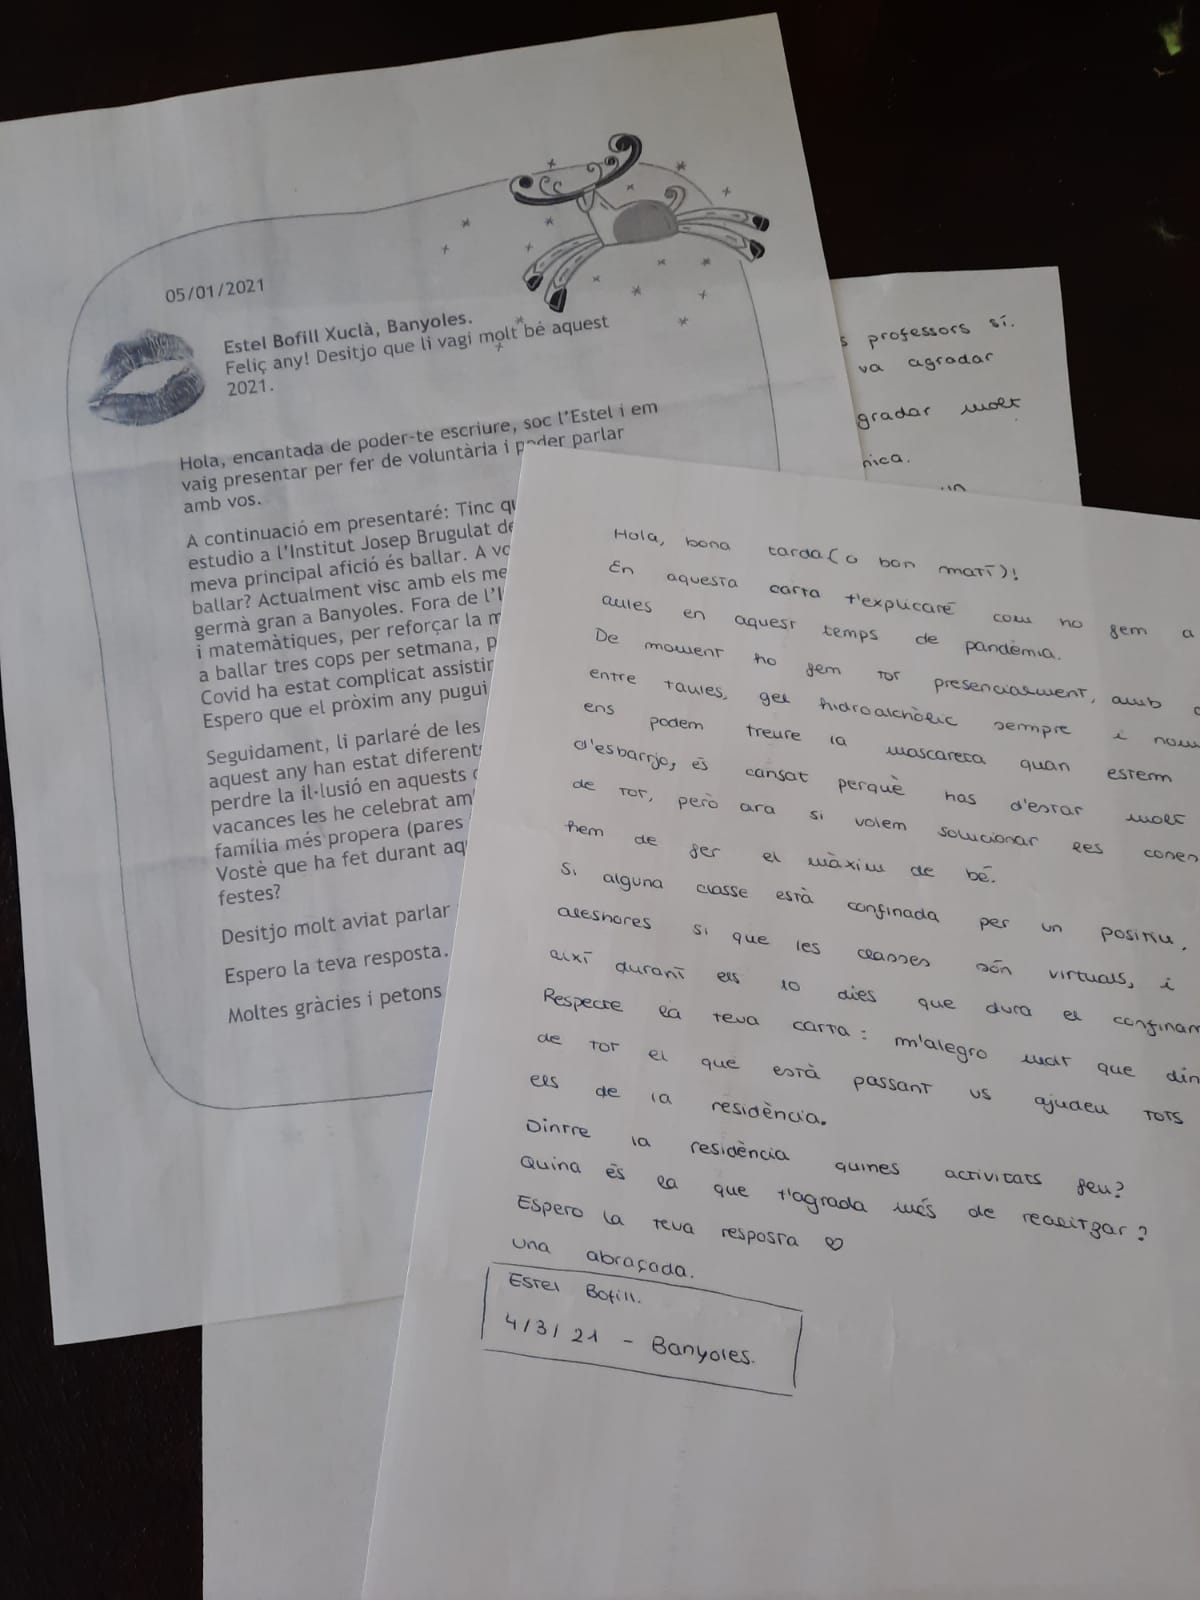 05/01/2021
Estel Bofill Xuclà, Banyoles.
Feliç any! Desitjo que li vagi molt bé aquest
2021.
Hola, encantada de poder-te escriure, soc l'Estel i em
vaig presentar per fer de voluntària i poder parlar
amb vos.
A continuació em presentaré: Tinc
estudio a l'Institut Josep Brugulat
meva principal afició és ballar. A
ballar? Actualment visc amb els
germà gran a Banyoles. Fora de
i matemàtiques, per reforçar la
a ballar tres cops per setmana,
Covid ha estat complicat assistir
Espero que el pròxim any pugui
Seguidament, li parlaré de les
aquest any han estat
perdre la il·lusió en aquests
vacances les he celebrat
família més propera (pares
Vostè que ha fet durant
festes?
Desitjo molt aviat parlar
Espero la teva resposta.
Moltes gràcies i petons
professors sí.
va agradar
molt
Hola, bona tarda (o bon matí)!
En aquesta carta t'explicaré com ho fem a
aules en aquest temps de pandèmia.
De moment ho fem tot presencialment, amb
entre taules, gel hidroalchòlic sempre i
ens podem treure la mascareta quan estem
d'esbarjo, és cansat perquè has d'estar molt
de tot, però ara si volem solucionar les
hem de fer el màxim de bé.
Si alguna classe està confinada per un positiu,
aleshores si que les classes són virtuals, i
així durant els 10 dies que dura el
Respecte la teva carta: m'alegro molt que
de tot el que està passant us ajudeu tots
els de la residència.
Dintre la residència quines activitats feu?
Quina és la que t'agrada més de realitzar?
Espero la teva resposta ♡
Una abraçada.
Estel Bofill.
4/3/21 - Banyoles.